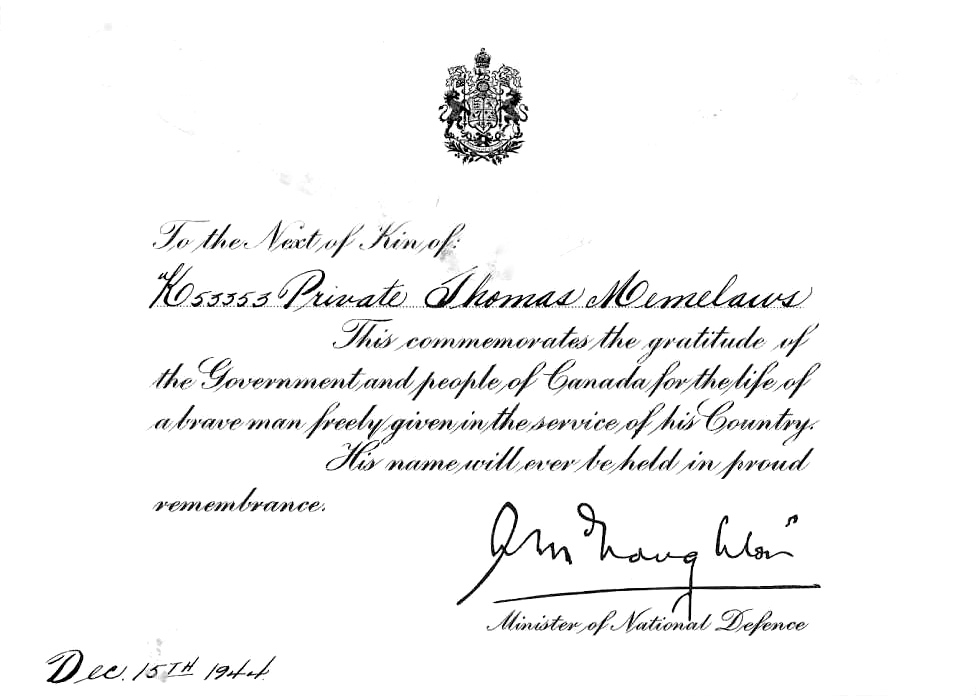 To the Next of Kin of:
"K53353 Private Thomas Memelaws
This commemorates the gratitude of
the Government and people of Canada for the life of
a brave man freely given in the service of his Country.
His name will ever be held in proud
remembrance.
A McNaughton"
Minister of National Defence
Dec. 15TH 1944.